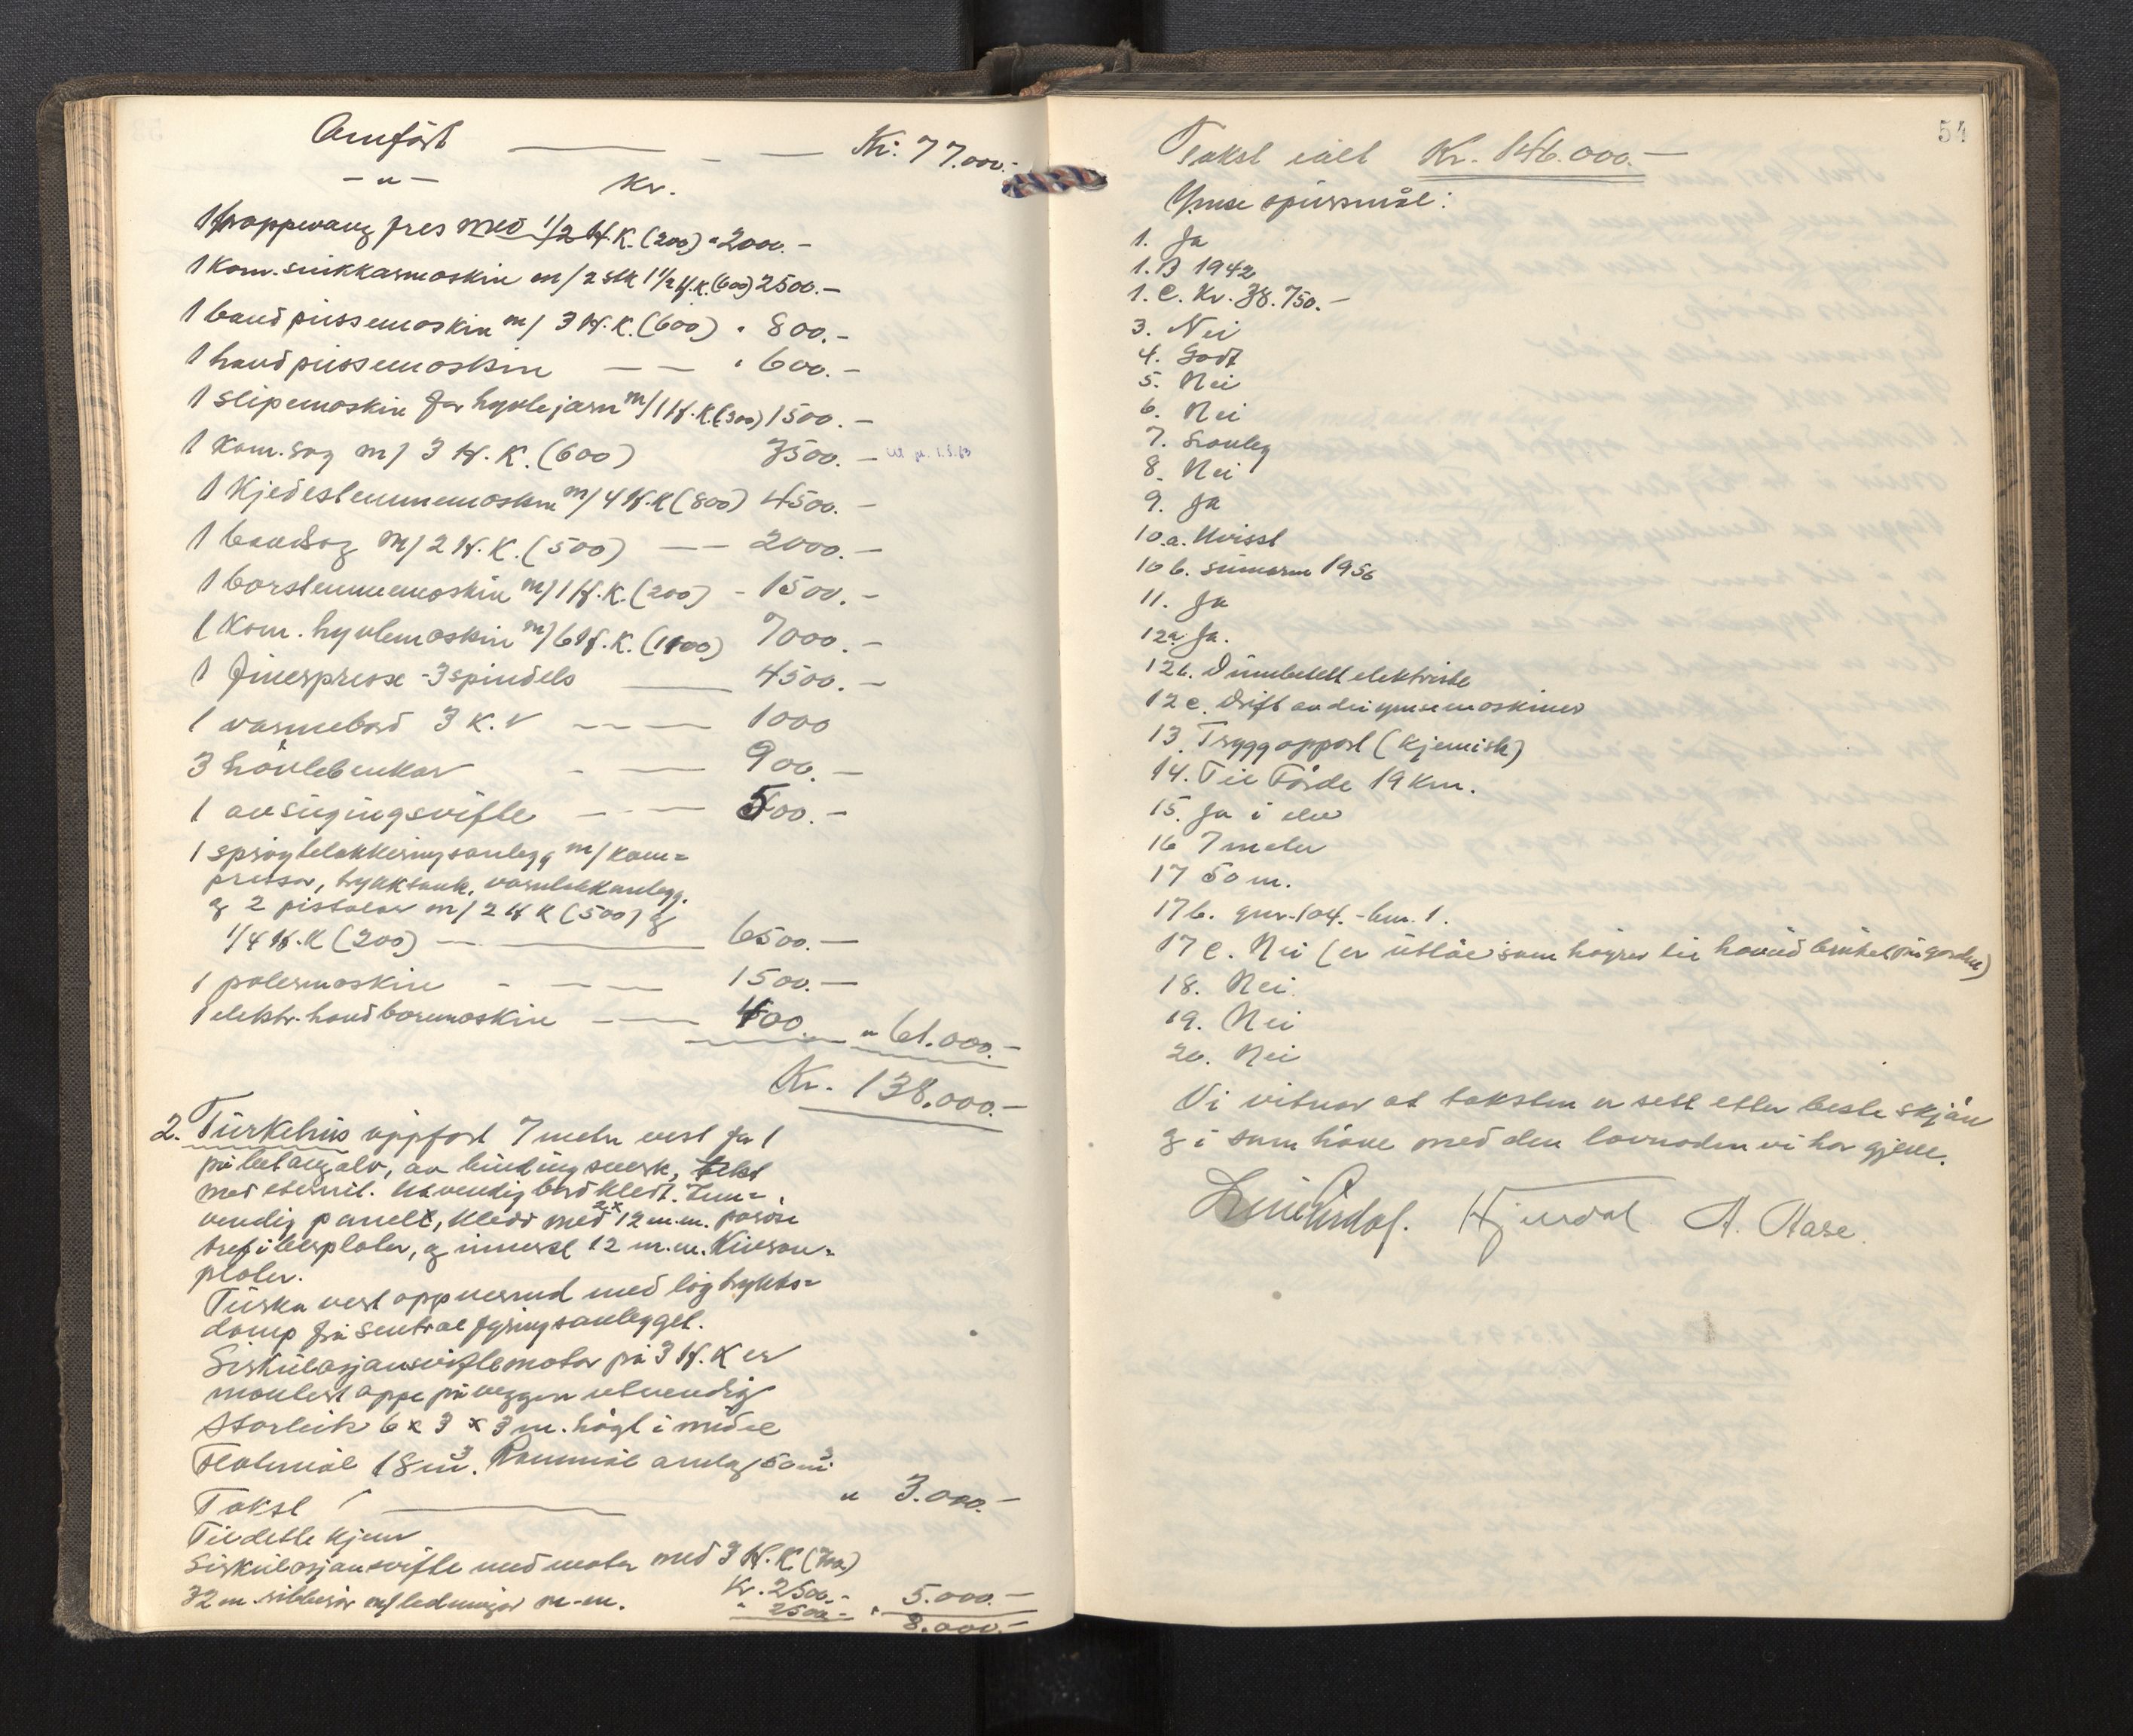 Omfört — — — Kr. 77.000.-
— " — Kr.
1 trappevang fres med 1/2 H.K. (200) " 2000.-
1 Kom. snikkarmaskin m/ 2 stk 1 1/2 H.K. (600) 2500.-
1 band pussemaskin m/ 3 H.K. (600) " 800.-
1 handpussemaskin — — " 600.-
1 slipemaskin for hyvlejarn m/ 1 H.K. (300) 1500.-
1 Kom. sag m/ 3 H.K. (600) 3500.-
1 Kjedestemmemaskin m/ 4 H.K (800) 4500.-
1 bandsag m/ 2 H.K. (500) — — 2000.-
1 borstemmemaskin m/ 1 H.K. (200) - 1500.-
1 Kom. hyvlemaskin m/ 6 H.K. (1100) 7000.-
1 Finerpresse - 3 spindels — 4500.-
1 varmebord 3 K.V — — 1000
3 hövlebenkar - — 900.-
1 avsugingsvifte — - — 500.-
1 sprøytelakkeringsanlegg m/ kom=
pressor, trykktank, varmlakkanlegg.
og 2 pistolar m/ 2 H K (500) og
1/4 H.K (200) — — 6500.—
1 polermaskin - — — 1500.—
1 elektr. handboremaskin — — 400. " 61.000.-
Kr. 138.000.-
2. Turkehus oppfört 7 meter vest for 1
på betonggolv, av bindingsverk, tekt
med eternit. Utvendig bordkledt. Inn=
vendig panelt, kledd med 2 x 12 m.m. porøse
trefiberplater, og innerst 12 m.m.
plater.
Turka vert oppvarmd med lågtrykks=
damp frå sentralfyringsanlegget.
Sirkulasjonsviftemotor på 3 H.K er
montert oppe på veggen utvendig
Storleik 6 x 3 x 3 m. högt i midel
Flatemål 18 m². Rommål omlag 50 m³
Takst — " 3.000.-
Til dette kjem
Sirkulasjonsvifte med motor med 3 H.K. (700) Kr. 2500.-
32 m. ribberör m/ ledningar m.m. " 2500.- " 5.000.-
8.000.-
54
Takst ialt Kr. 146.000.—
Ymse spursmål:
1. Ja
1.B 1942
1.C. Kr. 38.750.-
3. Nei
4. Godt
5. Nei
6. Nei
7. Vanleg
8. Nei
9. Ja
10.a. Uvisst
10 b. sumaren 1956
11. Ja
12a Ja.
12b. Omnbetelt elektriske
12 c. Drift av dei ymse maskiner
13. Trygg apparat (kjemisk)
14. Til Förde 19 Km.
15. Ja i elv
16 7 meter
17 50 m.
17b. gnr. 104. - bnr. 1.
17 c. Nei (er utlåe som höyrer til hovudbruket på garden)
18. Nei.
19. Nei
20. Nei
Vi vitnar at taksten er sett etter beste skjön
og i samhöve med den lovnaden vi har gjeve.
Hjerdal A. Aase.